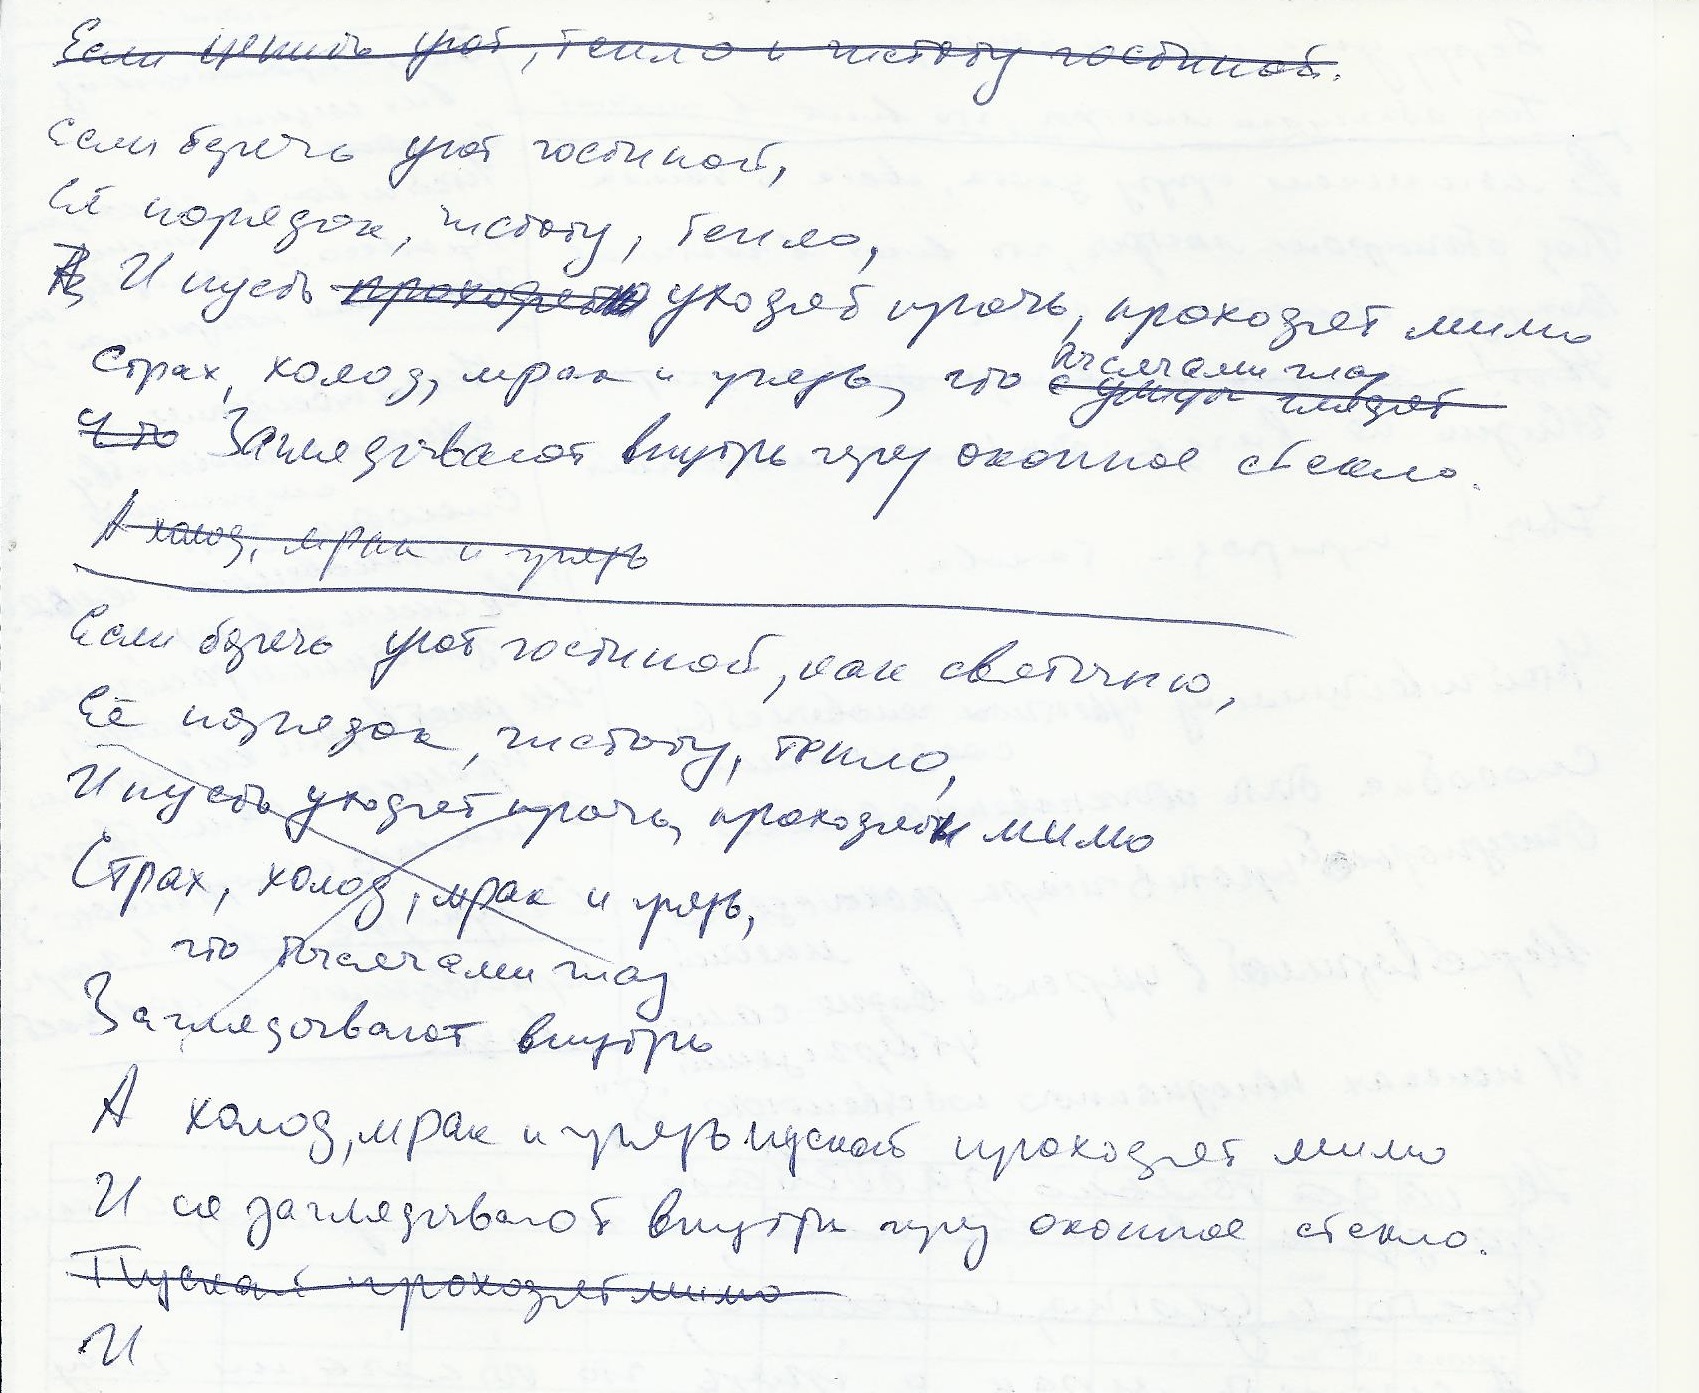 Если ценить уют, тепло и чистоту гостиной.
Если беречь уют гостиной,
Её порядок, чистоту, тепло,
И пусть проходят уходят прочь, проходят мимо
тысячами глаз
Страх, холод, мрак и грязь, что с улицы глядят
Что Заглядывают внутрь через оконное стекло.
А холод, мрак и грязь
Если беречь уют гостиной, как святыню,
Её порядок, чистоту, тепло,
И пусть уходят прочь, проходят мимо
Страх, холод, мрак и грязь,
что тысячами глаз
Заглядывают внутрь
А холод, мрак и грязь пускай проходят мимо
И не заглядывают внутрь через оконное стекло.
Пускай проходят мимо
И